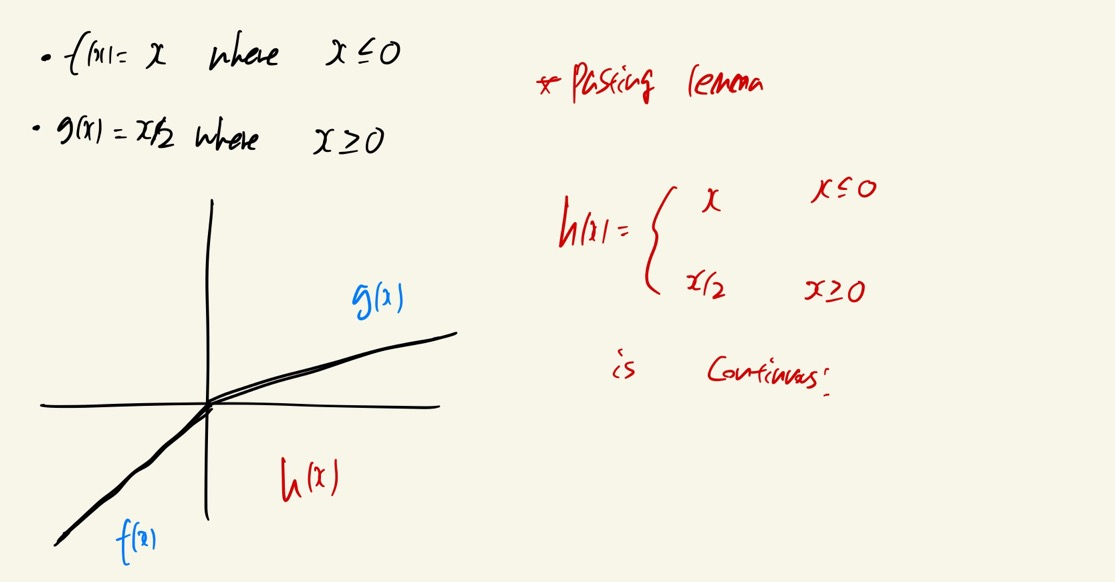 • f(x) = x where x ≤ 0
• g(x) = x/2 where x ≥ 0
g(x)
h(x)
f(x)
* Pasting lemma
h(x) = { x x ≤ 0
x/2 x ≥ 0
is Continuous!